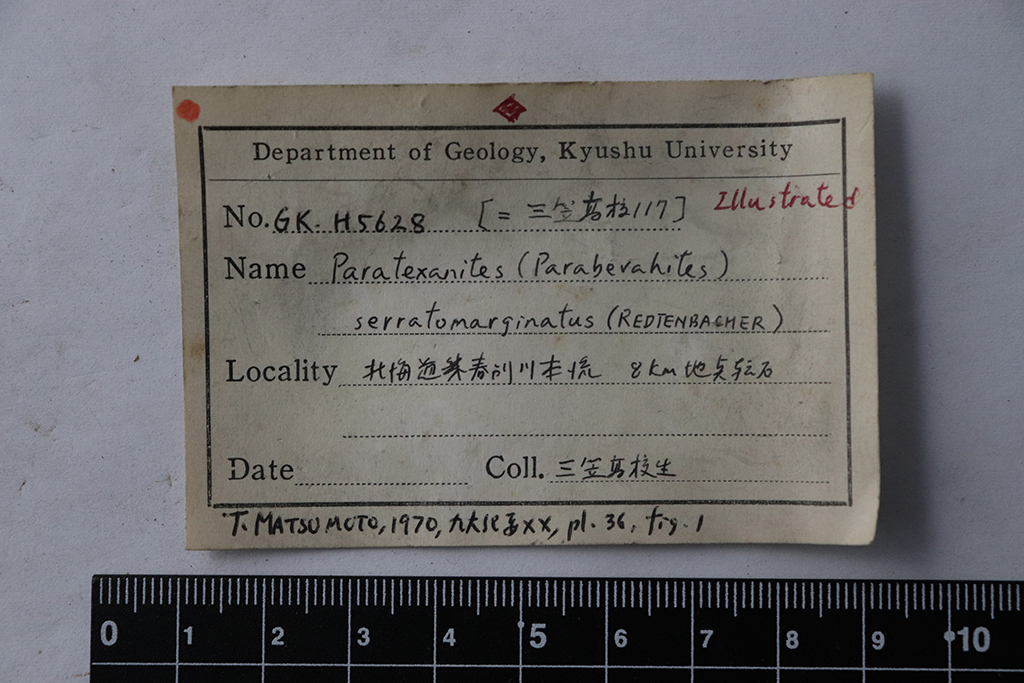 Department of Geology, Kyushu University
No. GK. H5628 [= 三笠高校117] Illustrated
Name Paratexanites (Parabevahites)
serratomarginatus (REDTENBACHER)
Locality 北海道幾春別川本流 8km地点転石
Date Coll. 三笠高校生
T. MATSUMOTO, 1970, 九大 XX, pl. 36, fig. 1
0 1 2 3 4 5 6 7 8 9 10